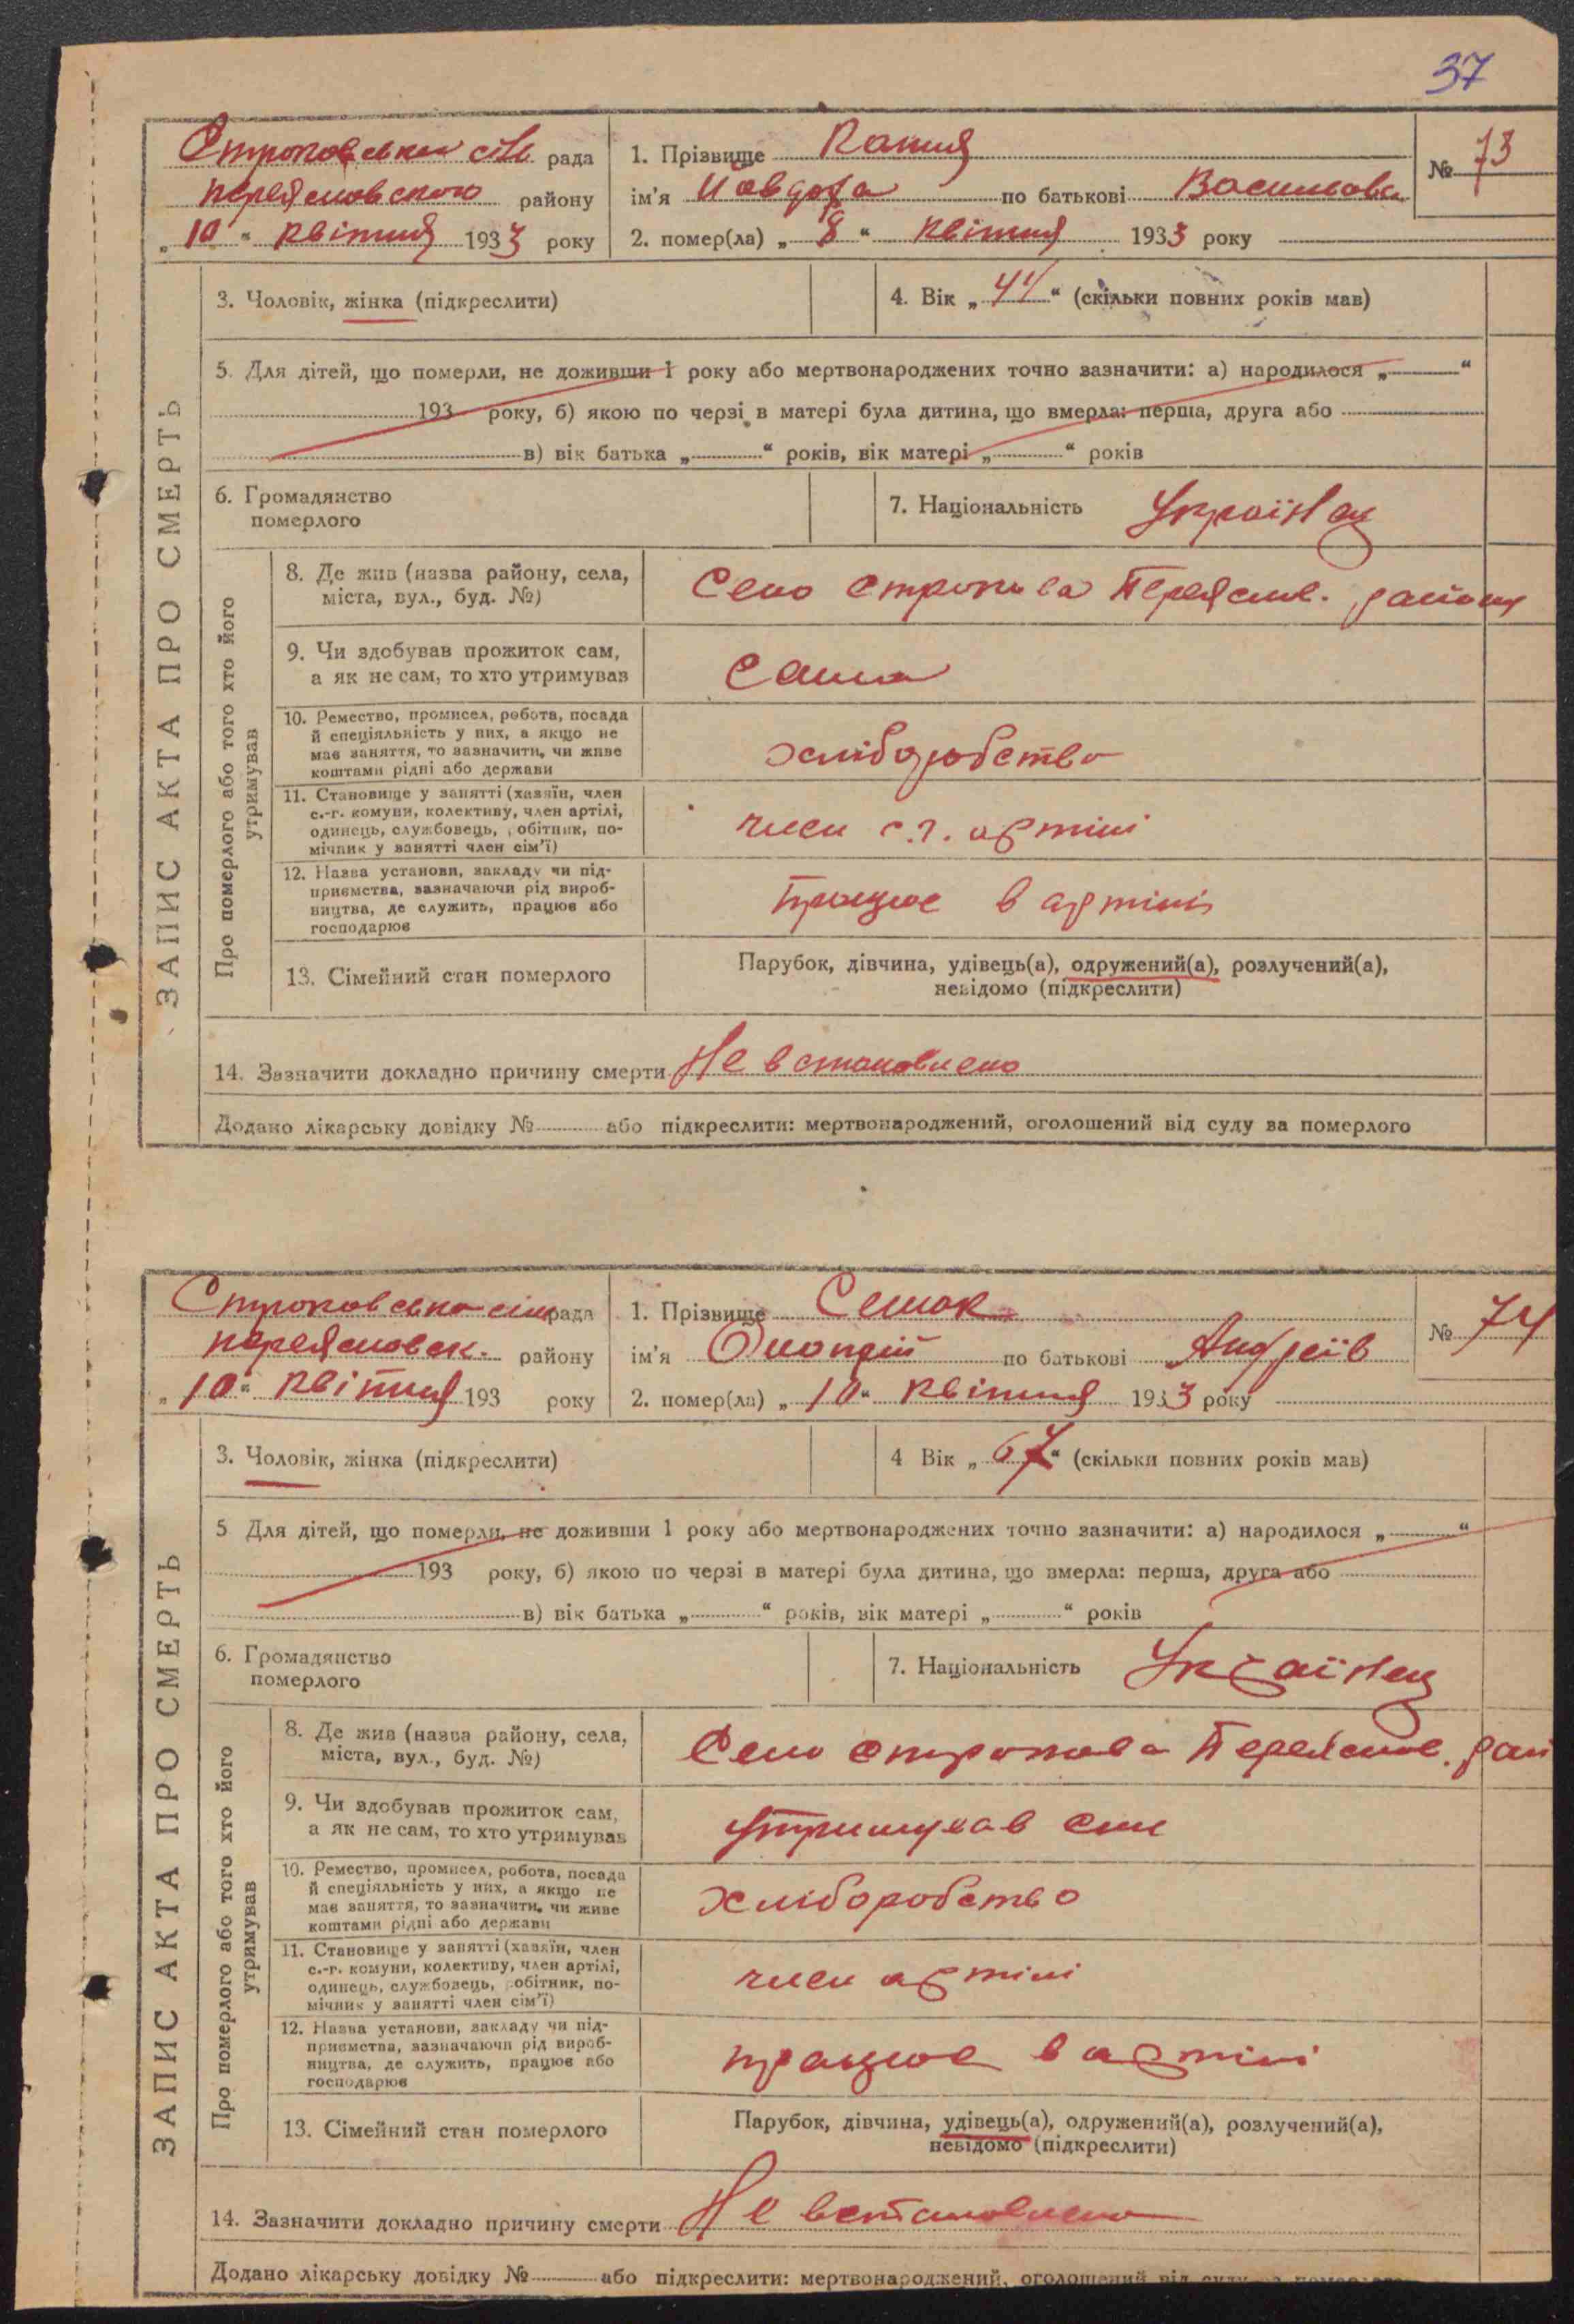 37
Строковська сіл рада
1. Прізвище
№ 73
Переяславського району
ім'я Йавдоха по батькові Васильовна
„ 10 “ квітня 1933 року
2. помер(ла) „ 8 “ квітня 1933 року
ЗАПИС АКТА ПРО СМЕРТЬ
3. Чоловік, жінка (підкреслити)
4. Вік „ “ (скільки повних років мав)
5. Для дітей, що померли, не доживши 1 року або мертвонароджених точно зазначити: а) народилося „ “
193 року, б) якою по черзі в матері була дитина, що вмерла: перша, друга або
в) вік батька „ “ років, вік матері „ “ років
6. Громадянство
померлого
7. Національність Українец
Про померлого або того хто його
утримував
8. Де жив (назва району, села,
міста, вул., буд. №)
Село Строкова Переяслв. району
9. Чи здобував прожиток сам,
а як не сам, то хто утримував
Сама
10. Ремество, промисел, робота, посада
й спеціяльність у них, а якщо не
має заняття, то зазначити, чи живе
коштами рідні або держави
хліборобство
11. Становище у занятті (хазяїн, член
с.-г. комуни, колективу, член артілі,
одинець, службовець, робітник, по-
мічник у занятті член сім'ї)
член с.г. артілі
12. Назва установи, закладу чи під-
приємства, зазначаючи рід вироб-
ництва, де служить, працює або
господарює
працює в артілі
13. Сімейний стан померлого
Парубок, дівчина, удівець(а), одружений(а), розлучений(а),
невідомо (підкреслити)
14. Зазначити докладно причину смерти Не встановлено
Додано лікарську довідку № або підкреслити: мертвонароджений, оголошений від суду за померлого
Строковська сіл рада
1. Прізвище Семак
№ 74
Переяславськ. району
ім'я по батькові Андреїв
„ 10 “ квітня 193 року
2. помер(ла) „ 10 “ квітня 1933 року
ЗАПИС АКТА ПРО СМЕРТЬ
3. Чоловік, жінка (підкреслити)
4 Вік „ 67 “ (скільки повних років мав)
5 Для дітей, що померли, не доживши 1 року або мертвонароджених точно зазначити: а) народилося „ “
193 року, б) якою по черзі в матері була дитина, що вмерла: перша, друга або
в) вік батька „ “ років, вік матері „ “ років
6. Громадянство
померлого
7. Національність Українец
Про померлого або того хто його
утримував
8. Де жив (назва району, села,
міста, вул., буд. №)
Село Строкова Переяслов. рай
9. Чи здобував прожиток сам,
а як не сам, то хто утримував
утримував син
10. Ремество, промисел, робота, посада
й спеціяльність у них, а якщо не
має заняття, то зазначити, чи живе
коштами рідні або держави
Хліборобство
11. Становище у занятті (хазяїн, член
с.-г. комуни, колективу, член артілі,
одинець, службовець, робітник, по-
мічник у занятті член сім'ї)
член артілі
12. Назва установи, закладу чи під-
приємства, зазначаючи рід вироб-
ництва, де служить, працює або
господарює
працює в артілі
13. Сімейний стан померлого
Парубок, дівчина, удівець(а), одружений(а), розлучений(а),
невідомо (підкреслити)
14. Зазначити докладно причину смерти Не встановлено
Додано лікарську довідку № або підкреслити: мертвонароджений, оголошений від суду за померлого